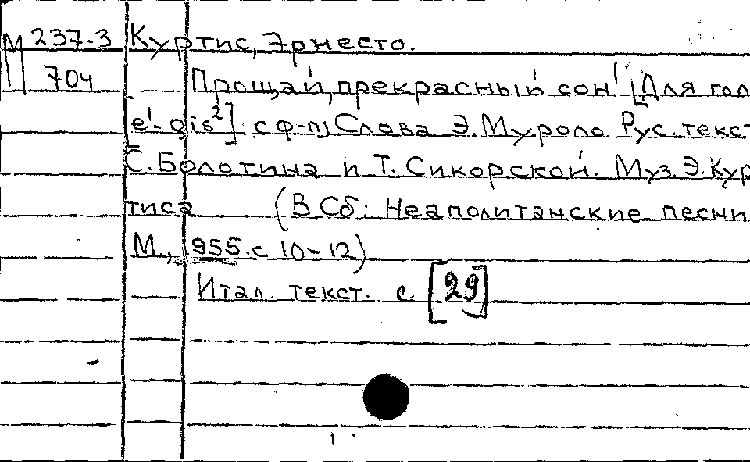 М 237-3 Куртис, Эрнесто.
704 Прощай, прекрасный сон! [Для гол
e¹-gis²] с ф-п) Слова Э. Муроло. Рус. текст
С. Болотина и Т. Сикорской. Муз. Э. Кур
тиса (В Сб: Неаполитанские песни
М., 1955. с 10-12)
Итал. текст. с. [29]